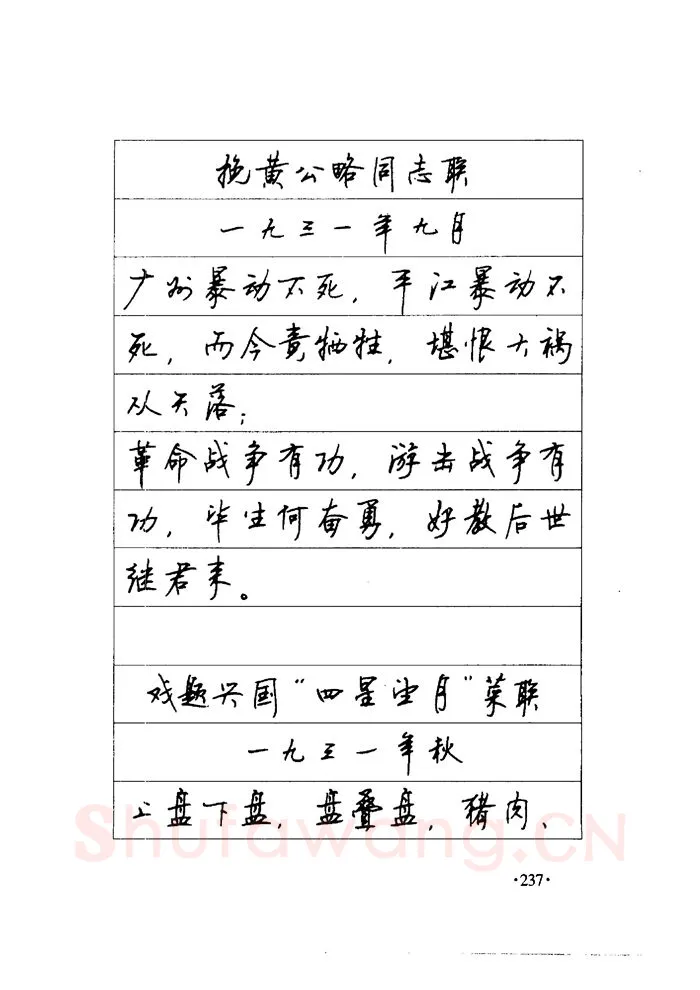 挽黄公略同志联
一九三一年九月
广州暴动不死，平江暴动不
死，而今竟牺牲，堪恨大祸
从天落；
革命战争有功，游击战争有
功，毕生何奋勇，好教后世
继君来。
戏题兴国“四星望月”菜联
一九三一年秋
上盘下盘，盘叠盘，猪肉、
Shufawang.CN
·237·